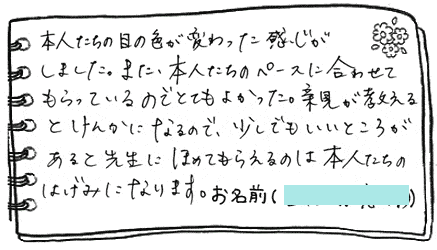 本人たちの目の色が変わった感じが
しました。また、本人たちのペースに合わせて
もらっているのでとてもよかった。親が教える
とけんかになるので、少しでもいいところが
あると先生にほめてもらえるのは本人たちの
はげみになります。お名前(